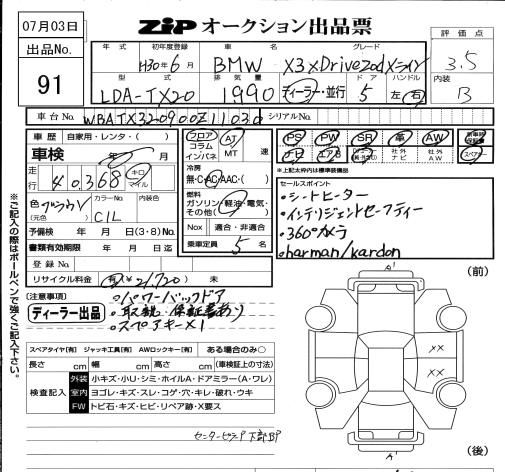 07月03日
ZIP オークション出品票
出品No.
91
年式 初年度登録 車名 グレード
H30年6月 BMW X3 xDrive20d Xライン
評価点
3.5
型式 排気量 ドア ハンドル
LDA-TX20 1990 ディーラー・並行 5 左・右
内装
B
車台No. WBATX320900Z11030 シリアルNo.
車歴 自家用・レンタ・( )
車検 年 月
走行 40,368 キロ マイル
色 ブラウン (元色) カラーNo. C1L 内装色
予備検 年 月 日(3・8)No.
書類有効期限 年 月 日迄
登録No.
リサイクル料金 有(¥21,720) 未
フロア コラム インパネ AJ MT 速
冷房
無・C・AC・AAC・( )
燃料
ガソリン・軽油・電気・その他( )
Nox 適合・非適合
乗車定員 5 名
PS PW SR 革 AW
ナビ エアB 社外ナビ 社外AW スペアキー
※上記太枠内は標準装備品
セールスポイント
・シートヒーター
・インテリジェントセーフティー
・360°カメラ
・harman/kardon
(注意事項)
ディーラー出品
・パワーバックドア
・取説・保証書あり
・スペアキー×1
スペアタイヤ[有] ジャッキ工具[有] AWロックキー[有] ある場合のみ〇
長さ cm 幅 cm 高さ cm (車検証上の寸法)
検査記入
外装 小キズ・小U・シミ・ホイルA・ドアミラー(A・ワレ)
室内 ヨゴレ・キズ・スレ・コゲ・穴・キレ・破れ・ウキ
FW トビ石・キズ・ヒビ・リペア跡・X要ス
センターピラーP下部BP
※ご記入の際はボールペンで強くご記入下さい。
(前)
A'
××
××
A'
(後)